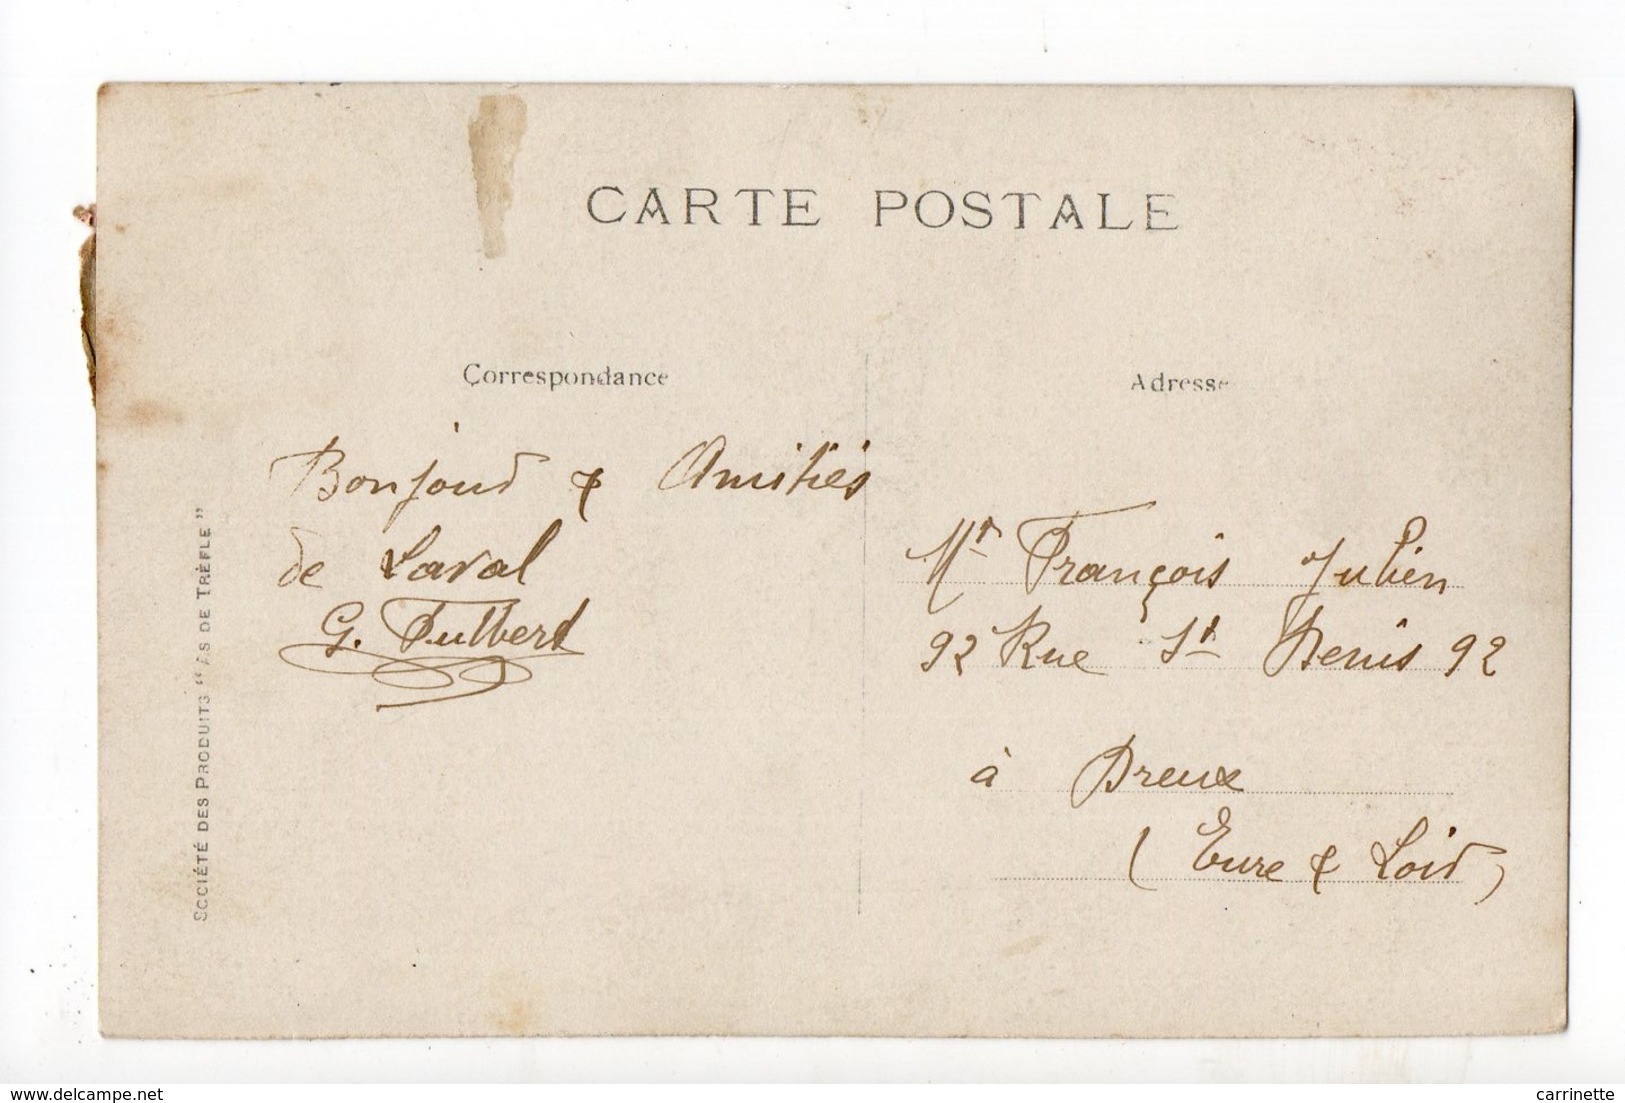 CARTE POSTALE
Correspondance
Bonjour & Amitiés
de Laval
G. Fulbert
SOCIÉTÉ DES PRODUITS "AS DE TRÈFLE"
Adresse
Mr François Julien
92 Rue St Denis 92
à Dreux
(Eure & Loir)
delcampe.net
carrinette